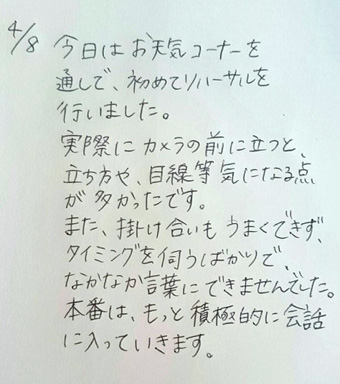 4/8 今日はお天気コーナーを
通しで、初めてリハーサルを
行いました。
実際にカメラの前に立つと、
立ち方や、目線等気になる点
が多かったです。
また、掛け合いもうまくできず、
タイミングを伺うばかりで、
なかなか言葉にできませんでした。
本番は、もっと積極的に会話
に入っていきます。